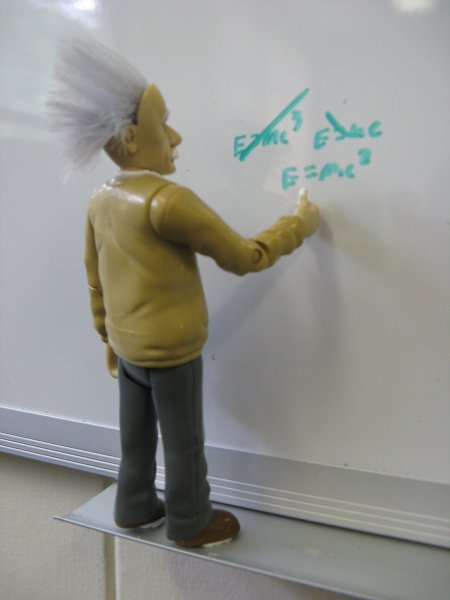 E=mc³ E=mc
E=mc²